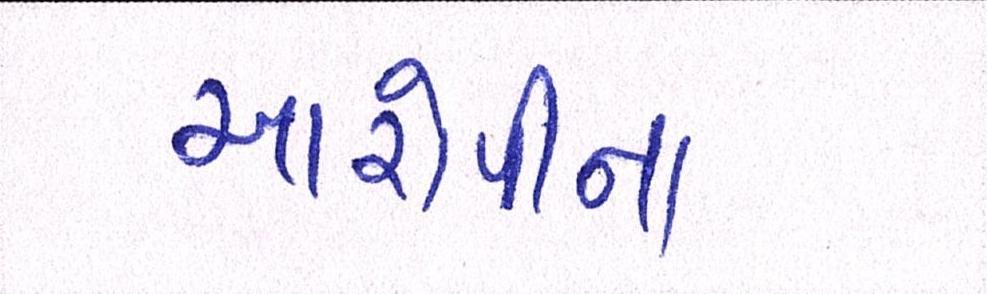 આરોપીના